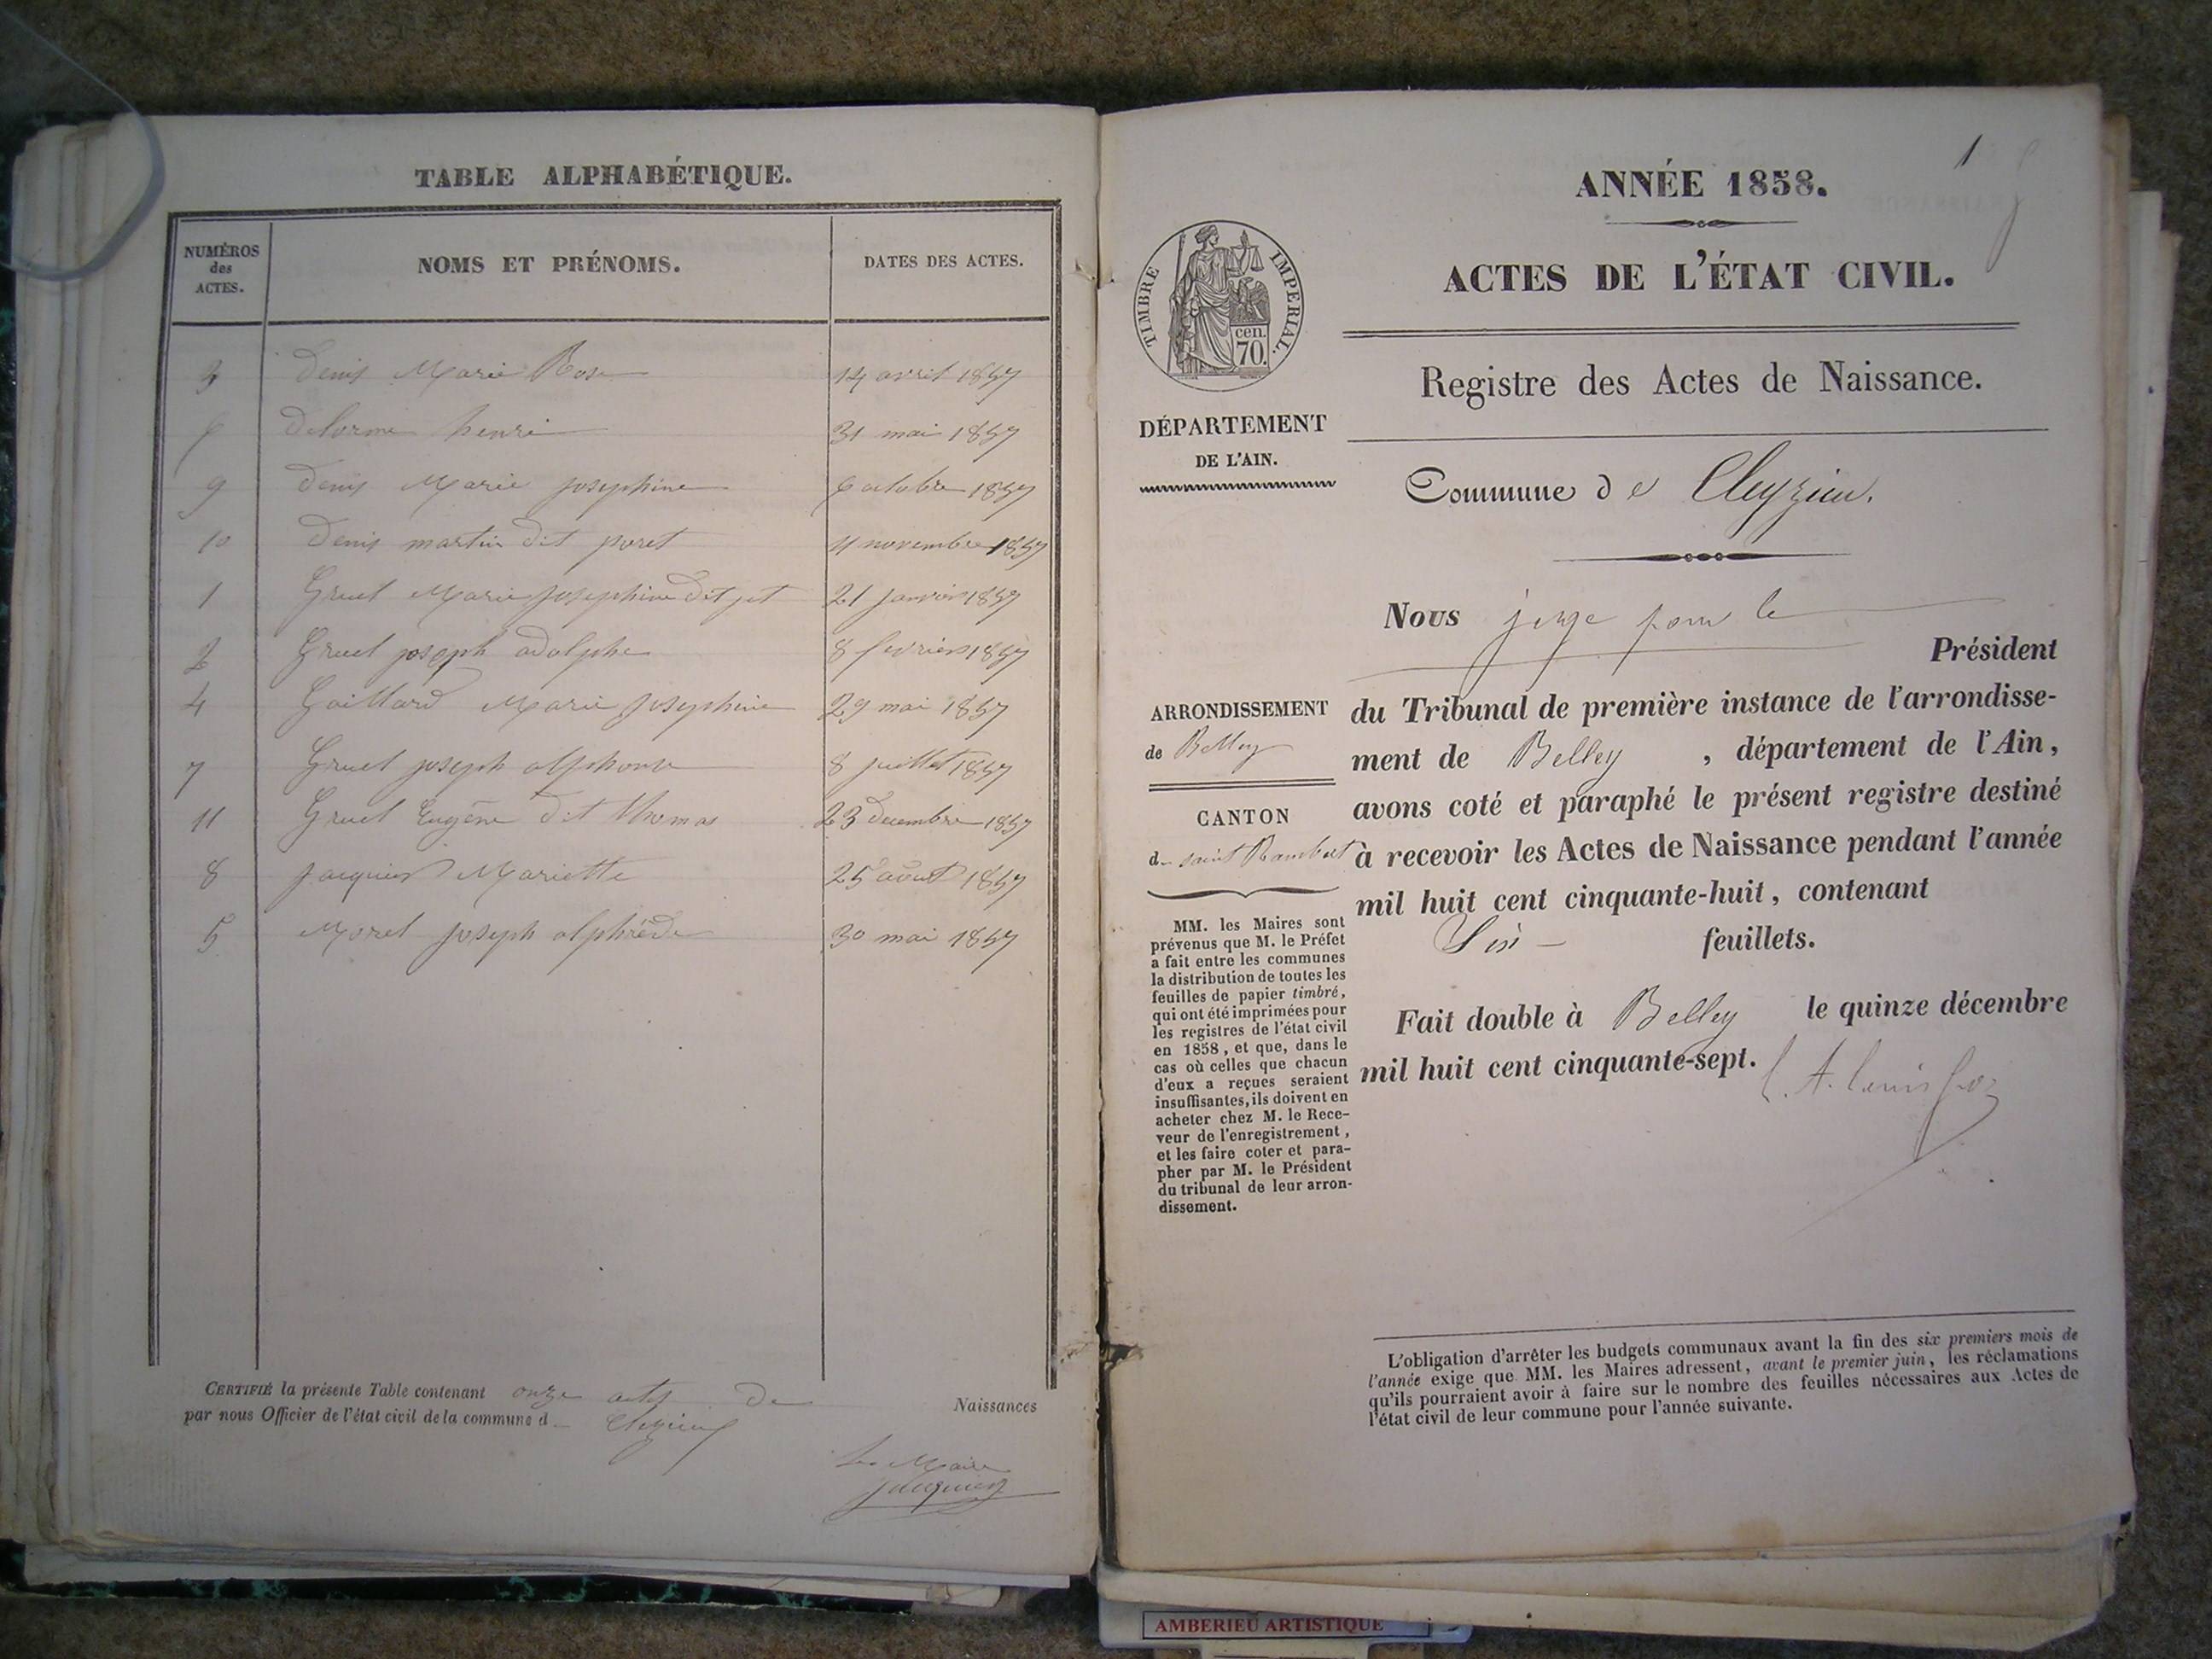 TABLE ALPHABÉTIQUE.
NUMÉROS des ACTES.
NOMS ET PRÉNOMS.
DATES DES ACTES.
3 Denis Marie Rose 14 avril 1857
6 Delorme henri 31 mai 1857
9 Denis Marie josephine 6 octobre 1857
10 Denis martin dit poret 11 novembre 1857
1 Gruel Marie josephine dit jet 21 janvier 1857
2 Gruel joseph adolphe 8 fevrier 1857
4 Gaillard Marie josephine 29 mai 1857
7 Gruel joseph alphonse 8 juillet 1857
11 Gruel Eugêne dit thomas 23 decembre 1857
8 jacquier Mariette 25 août 1857
5 Morel joseph alphrède 30 mai 1857
CERTIFIÉ la présente Table contenant onze actes de Naissances
par nous Officier de l'état civil de la commune d Cleyzieu
Le Maire
jacquier
1
ANNÉE 1858.
ACTES DE L'ÉTAT CIVIL.
TIMBRE IMPERIAL.
cen.
70.
Registre des Actes de Naissance.
DÉPARTEMENT
DE L'AIN.
Commune de Cleyzieu.
Nous juge pour le
Président
du Tribunal de première instance de l'arrondisse-
ment de Belley, département de l'Ain,
avons coté et paraphé le présent registre destiné
à recevoir les Actes de Naissance pendant l'année
mil huit cent cinquante-huit, contenant
Six feuillets.
Fait double à Belley le quinze décembre
mil huit cent cinquante-sept.
ARRONDISSEMENT
de Belley
CANTON
de saint Rambert
MM. les Maires sont
prévenus que M. le Préfet
a fait entre les communes
la distribution de toutes les
feuilles de papier timbré,
qui ont été imprimées pour
les registres de l'état civil
en 1858, et que, dans le
cas où celles que chacun
d'eux a reçues seraient
insuffisantes, ils doivent en
acheter chez M. le Rece-
veur de l'enregistrement,
et les faire coter et para-
pher par M. le Président
du tribunal de leur arron-
dissement.
L'obligation d'arrêter les budgets communaux avant la fin des six premiers mois de
l'année exige que MM. les Maires adressent, avant le premier juin, les réclamations
qu'ils pourraient avoir à faire sur le nombre des feuilles nécessaires aux Actes de
l'état civil de leur commune pour l'année suivante.
AMBERIEU ARTISTIQUE